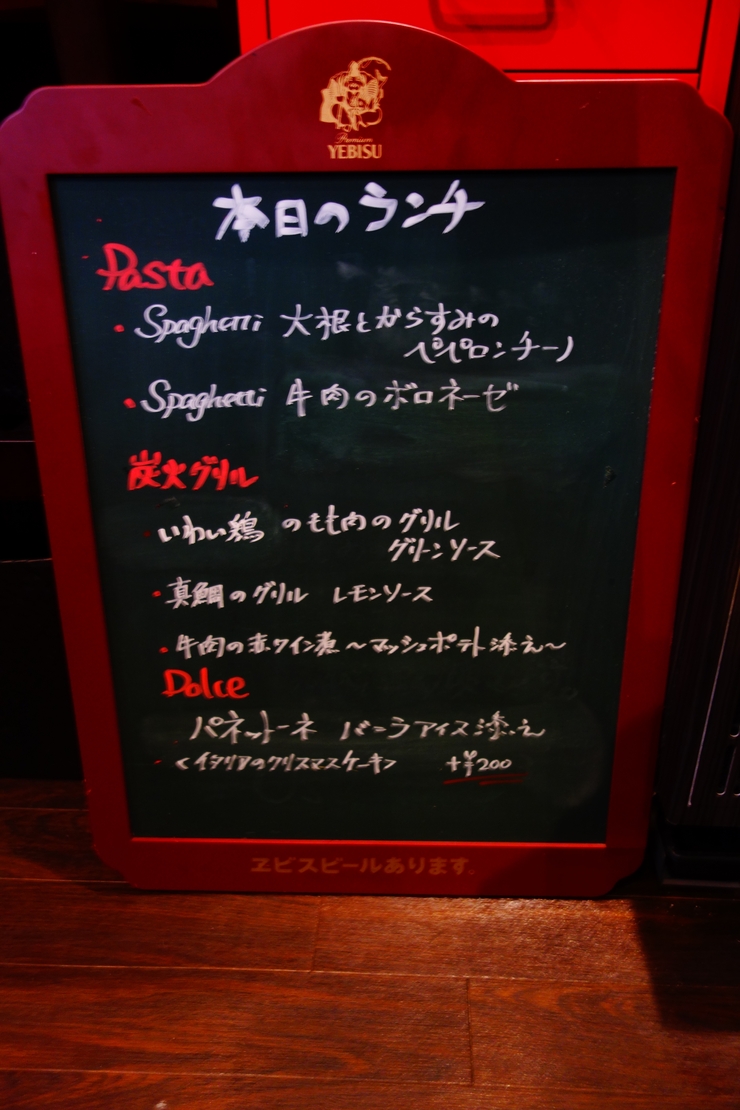 Premium
YEBISU
本日のランチ
Pasta
・Spaghetti 大根とからすみの
ペペロンチーノ
・Spaghetti 牛肉のボロネーゼ
炭火グリル
・いわい鶏 のもも肉のグリル
グリーンソース
・真鯛のグリル レモンソース
・牛肉の赤ワイン煮〜マッシュポテト添え〜
Dolce
パネットーネ バニラアイス添え
・<イタリアのクリスマスケーキ> +¥200
ヱビスビールあります。